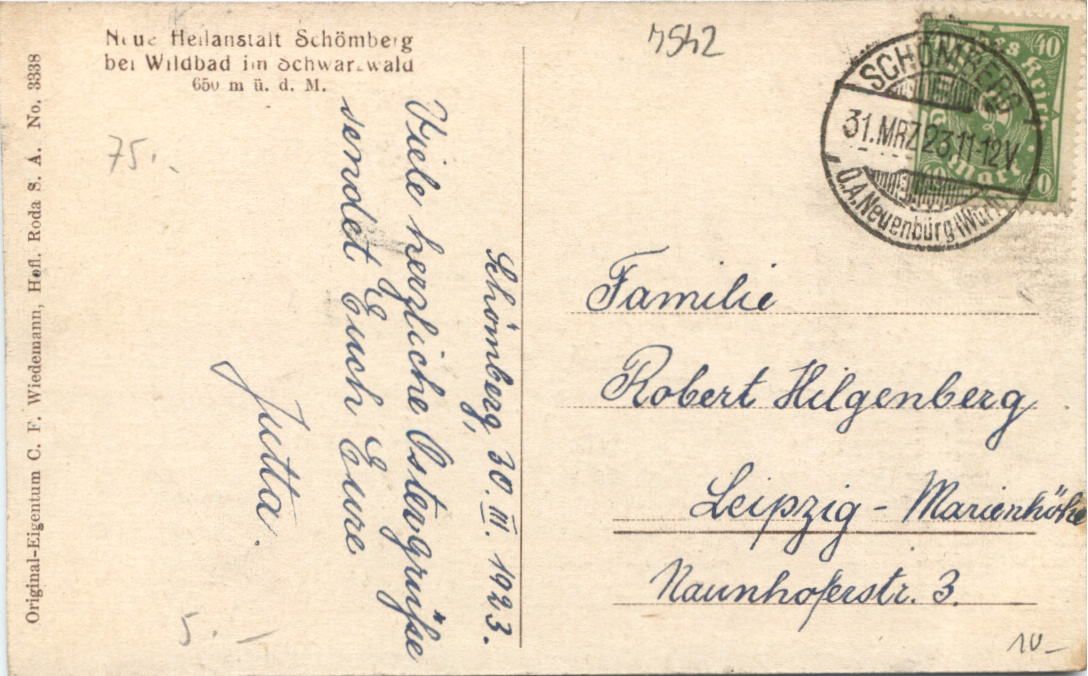 Neue Heilanstalt Schömberg
bei Wildbad im Schwarzwald
650 m ü. d. M.
Original-Eigentum C. F. Wiedemann, Hofl. Roda S. A. No. 3338
75.-
5.-
Schömberg, 30. III. 1923.
Viele herzliche Ostergrüße
sendet Euch Eure
Jutta.
SCHÖMBERG
31.MRZ.23.11-12V.
O.A. Neuenbürg (Württ
40
40
Mark
40
Familie
Robert Hilgenberg
Leipzig - Marienhöhe
Naunhoferstr. 3.
10-